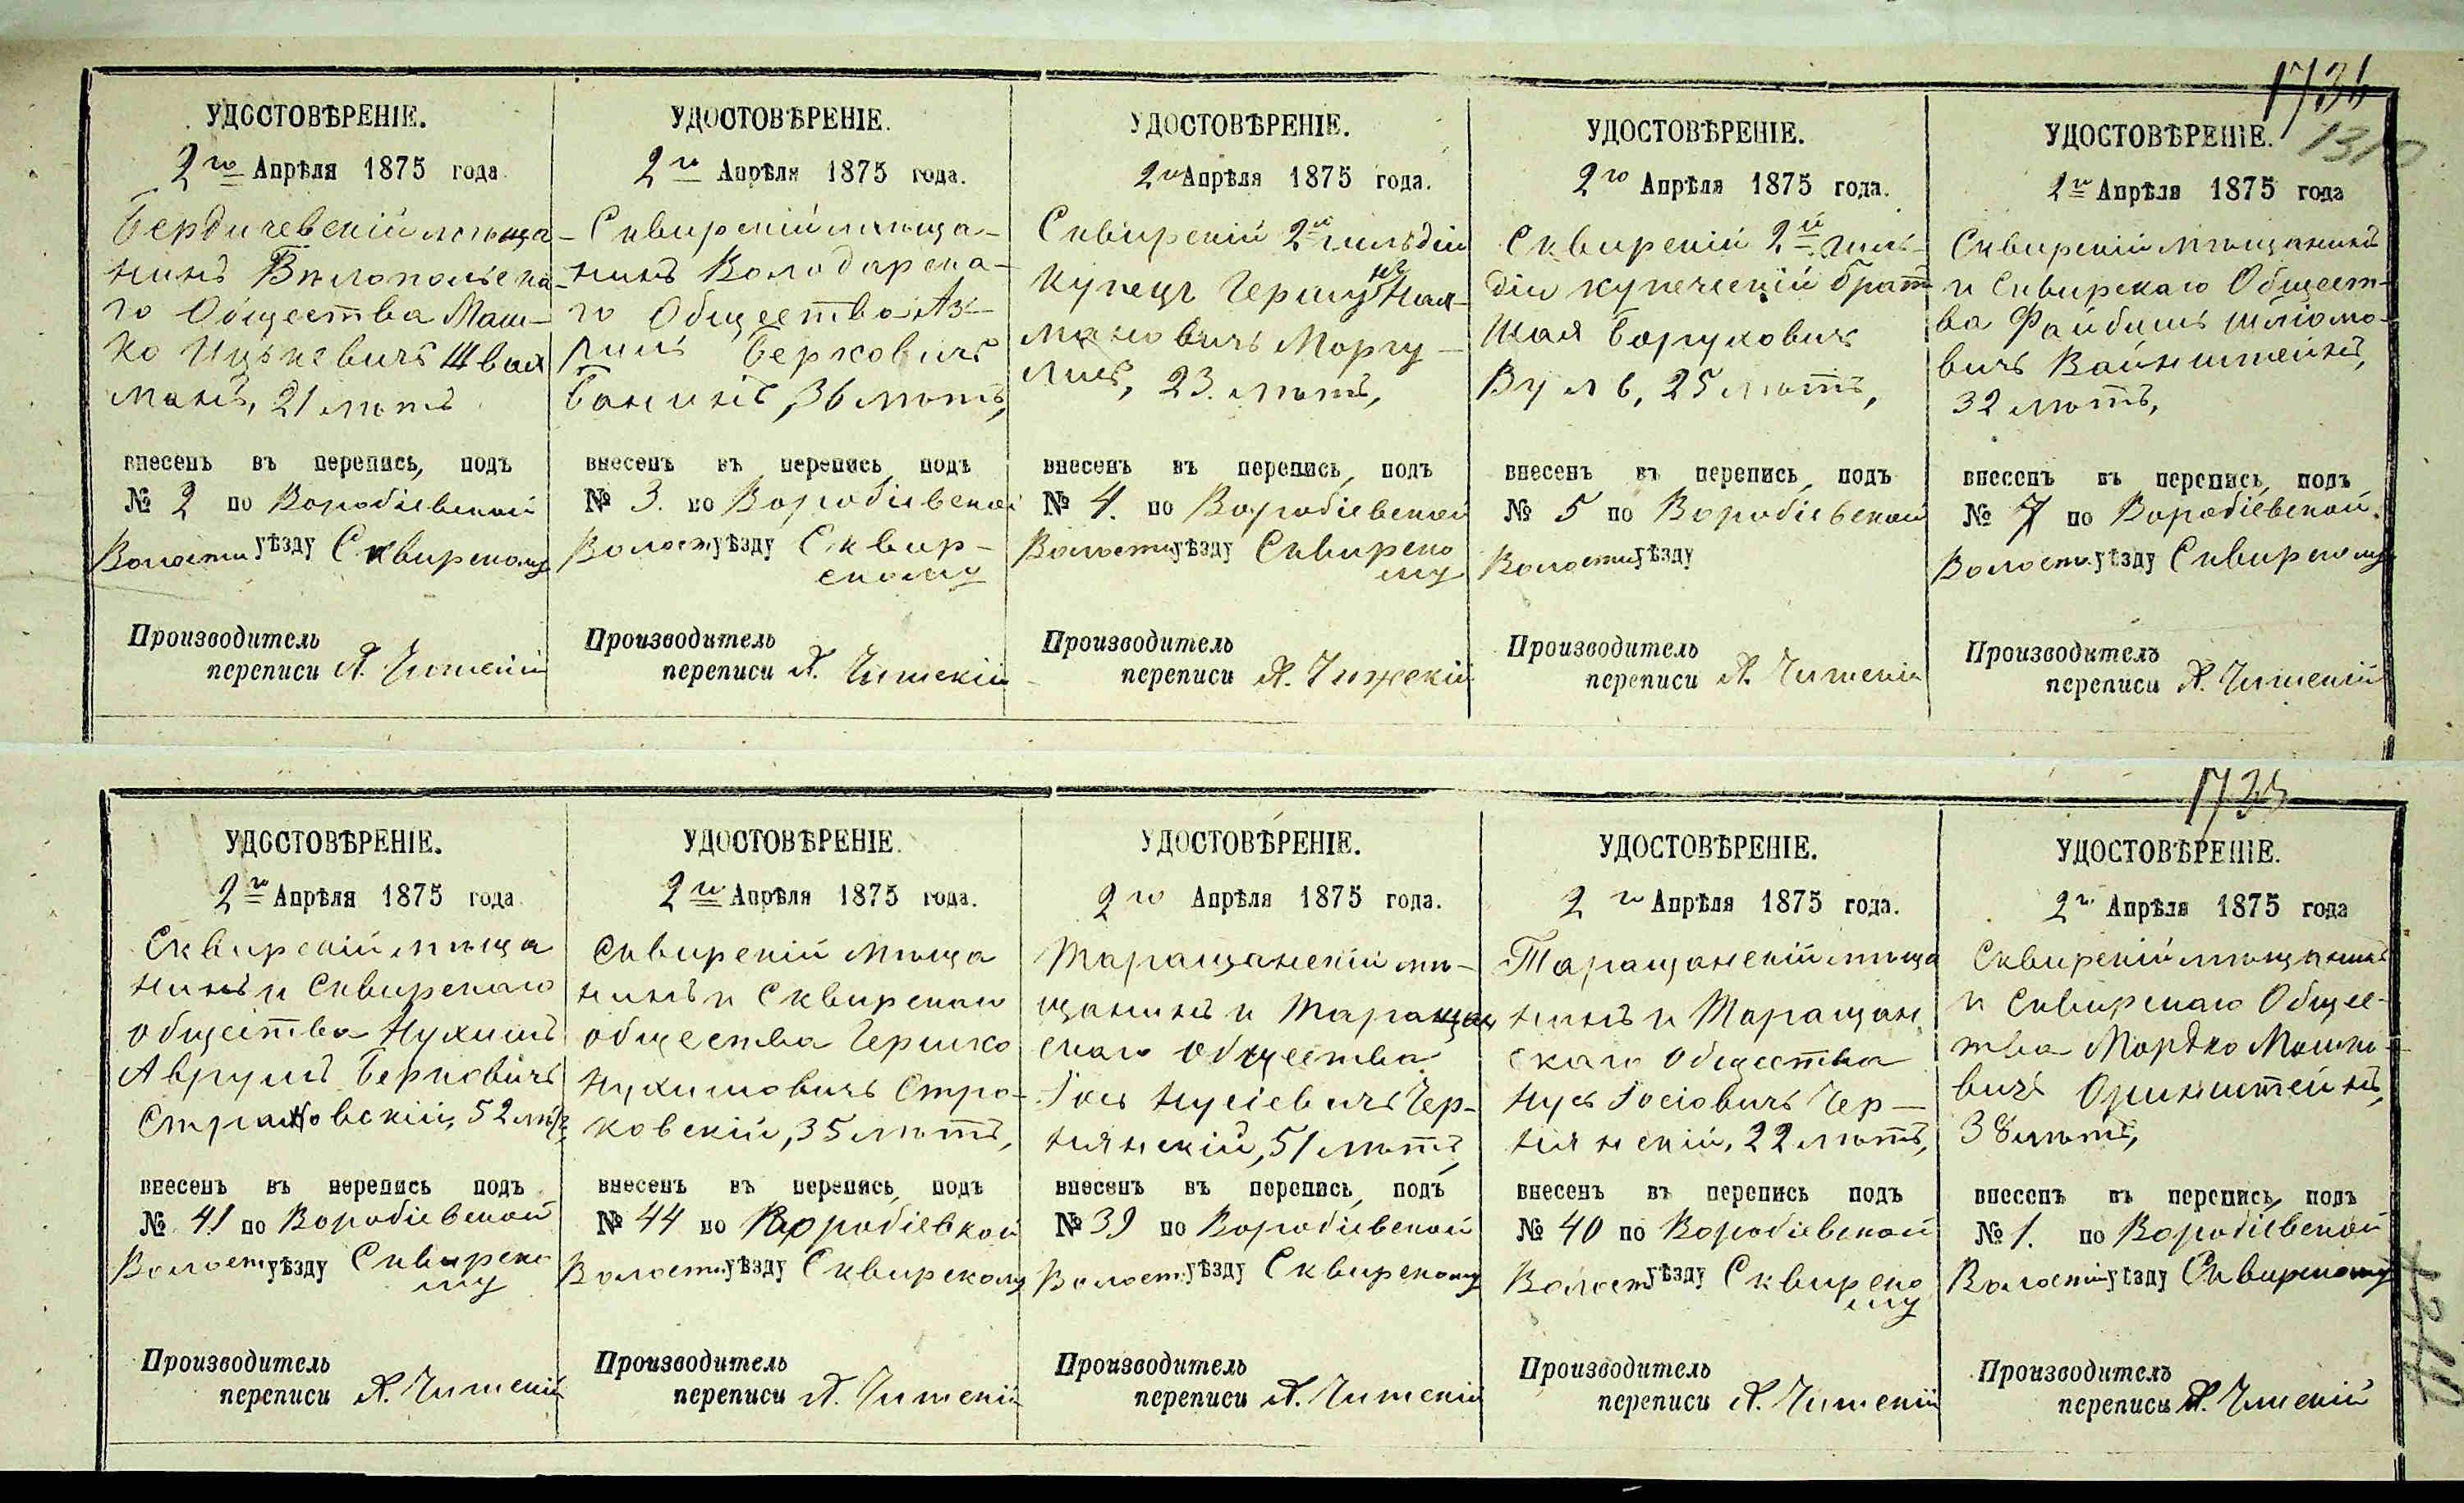 1736
1310
УДОСТОВѢРЕНІЕ.
2го Апрѣля 1875 года
Бердичевскій мѣща
нинъ Бѣлопольска-
го Общества Маш-
ко Ицькевичъ Швая
манъ, 21 лѣтъ
внесенъ въ перепись, подъ
№ 2 по Воробіевской
Волости уѣзду Сквирскому
Производитель
переписи А. Чишскій
УДОСТОВѢРЕНІЕ.
2го Апрѣля 1875 года.
Сквирскій мѣща-
нинъ Володарска-
го Общества
Берковичъ
Банинъ, 36 лѣтъ,
внесенъ въ перепись подъ
№ 3. по Воробіевской
Волости уѣзду Сквир-
скому
Производитель
переписи А. Чишскій
УДОСТОВѢРЕНІЕ.
2го Апрѣля 1875 года.
Сквирскій 2й гильдіи
Купецъ Гершу Нах-
мановичъ Моргу-
лисъ, 23. лѣтъ,
внесенъ въ перепись, подъ
№ 4. по Воробіевской
Волости уѣзду Сквирско
му
Производитель
переписи А. Чишскій
УДОСТОВѢРЕНІЕ.
2го Апрѣля 1875 года.
Сквирскій 2й гиль-
діи купеческій братъ
Шая Боруховичъ
Вулъ, 25 лѣтъ,
внесенъ въ перепись, подъ
№ 5 по Воробіевской
Волости уѣзду
Производитель
переписи А. Чишскій
УДОСТОВѢРЕНІЕ.
2го Апрѣля 1875 года
Сквирскій мѣщанинъ
и Сквирскаго Общест-
ва Файбишъ Шліомо-
вичъ Вайнштейнъ,
32 лѣтъ,
внесенъ въ перепись, подъ
№ 7 по Воробіевской
Волости уѣзду Сквирскому
Производитель
переписи А. Чишскій
1735
УДОСТОВѢРЕНІЕ.
2го Апрѣля 1875 года
Сквирскій мѣща
нинъ и Сквирскаго
общества Нухимъ
Аврумъ Берковичъ
Страковскій, 52 лѣтъ,
внесенъ въ перепись подъ
№ 41 по Воробіевской
Волости уѣзду Сквирско
му
Производитель
переписи А. Чишскій
УДОСТОВѢРЕНІЕ.
2го Апрѣля 1875 года.
Сквирскій мѣща
нинъ и Сквирскаго
общества Гершко
Нухимовичъ Стро-
ковскій, 35 лѣтъ,
внесенъ въ перепись, подъ
№ 44 по Воробіевкой
Волости уѣзду Сквирскому
Производитель
переписи А. Чишскій
УДОСТОВѢРЕНІЕ.
2го Апрѣля 1875 года.
Таращанскій мѣ-
щанинъ и Таращан
скаго общества
Іось Нусіевичъ Чер-
нянскій, 51 лѣтъ,
внесенъ въ перепись, подъ
№ 39 по Воробіевской
Волости уѣзду Сквирскому
Производитель
переписи А. Чишскій
УДОСТОВѢРЕНІЕ.
2го Апрѣля 1875 года.
Таращанскій мѣща
нинъ и Таращан
скаго Общества
Нусь Іосіовичъ Чер-
нянскій, 22 лѣтъ,
внесенъ въ перепись подъ
№ 40 по Воробіевской
Волости уѣзду Сквирско
му
Производитель
переписи А. Чишскій
УДОСТОВѢРЕНІЕ.
2го Апрѣля 1875 года
Сквирскій мѣщанинъ
и Сквирскаго Общес-
тва Мордко Машко-
вичъ Оринштейнъ,
38 лѣтъ,
внесенъ въ перепись, подъ
№ 1. по Воробіевской
Волости уѣзду Сквирскому
Производитель
переписи А. Чишскій